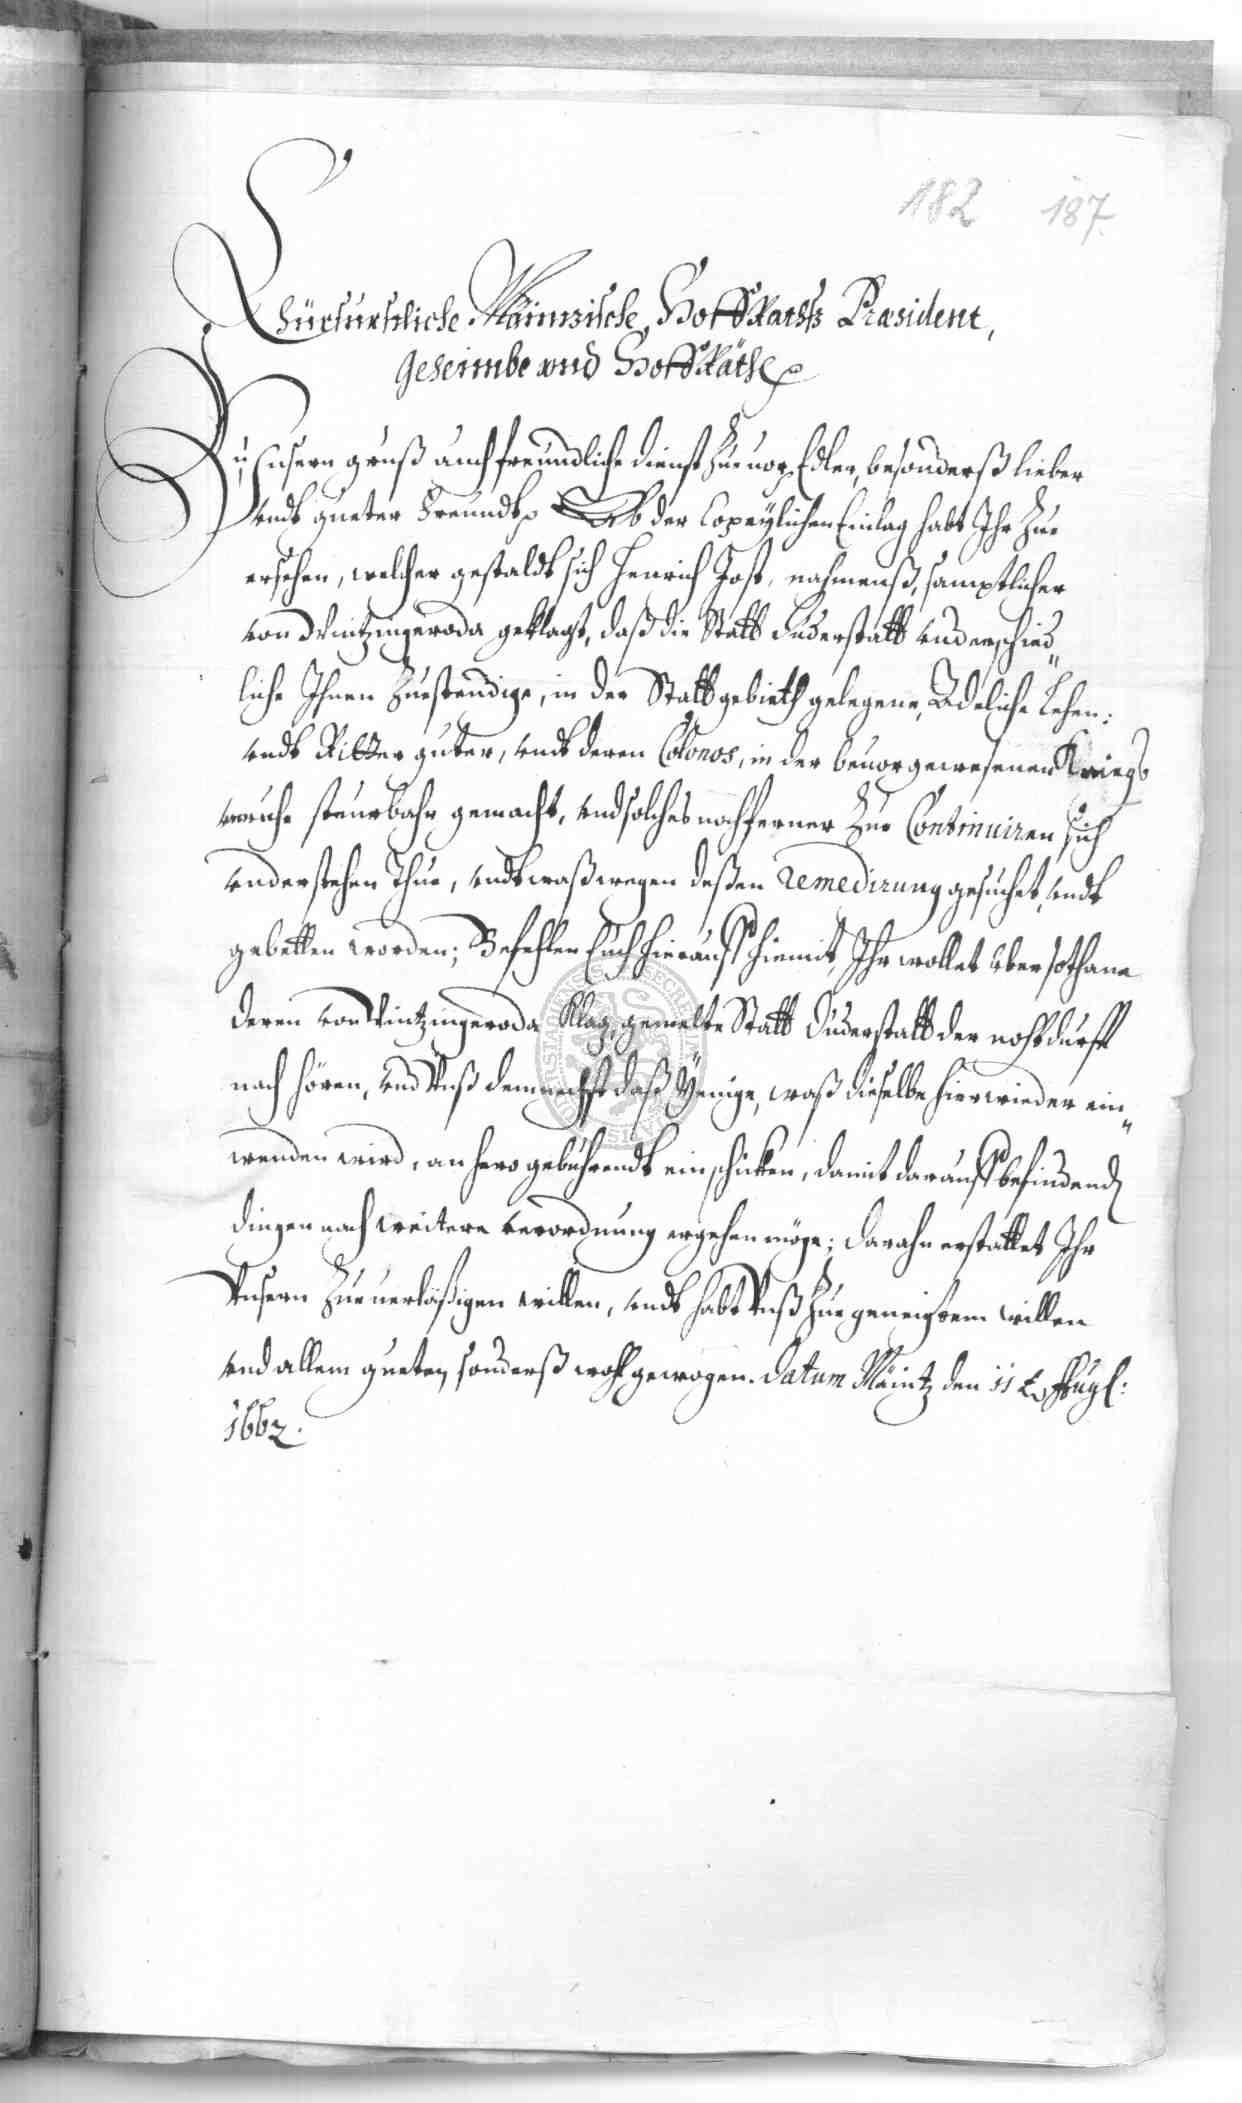 182 187.
Chürfürstliche Mäintzische HoffRaths Præsident,
Geheimbe vnd HoffRäthe
Unsern gruß auch freundliche dienst zuuor, Edler, besonderß lieber
vndt gueter Freundt Ab der Copeylichen Einlag habt Ihr zue
ersehen, welcher gestaldt sich Henrich Jost, nahmenß, samptlicher
von Wintzingeroda geklagt, daß die Statt Duderstatt underschied„
liche Ihnen zuestendige, in der Statt gebieth gelegene, Adeliche Lehen:
vndt Ritter guter, vndt deren Colonos, in der beuorgewesenen Kriegs
vnruhe steurbahr gemacht, vnd solches noch ferner zue Continuiren sich
vnderstehen thue, vndt waß wegen deßen remedirung gesuchet, vndt
gebetten worden; Befehlen Euch hierauff hiemit, Ihr wollet über sothane
deren von Wintzingeroda Klag, gemelte Statt Duderstatt der nohtdurfft
nach hören, vnd Vnß demnechst daß Yenige, waß dieselbe hierwieder ein„
wenden wird, anhero gebührendt einschicken, damit darauff befindenden
dingen nach weitere verordnung ergehen möge; Darahn erstattet Ihr
Vnsern zuuerläßigen willen, vndt habt Vnß zue geneigtem willen
vnd allem gueten sonderß wohl gewogen. Datum Mäintz den 11
1662.